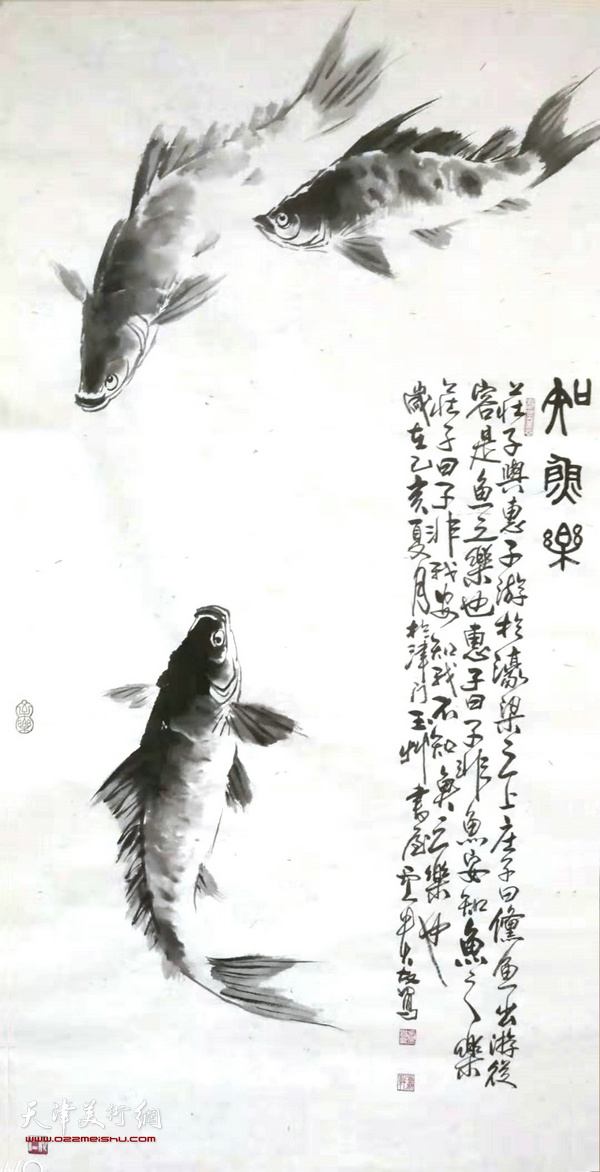 知魚樂
莊子與惠子游於濠梁之上莊子曰儵魚出游從
容是魚之樂也惠子曰子非魚安知魚之樂
莊子曰子非我安知我不知魚之樂也
歲在乙亥夏月於津門玉州書屋
天津美術網
www.022meishu.com